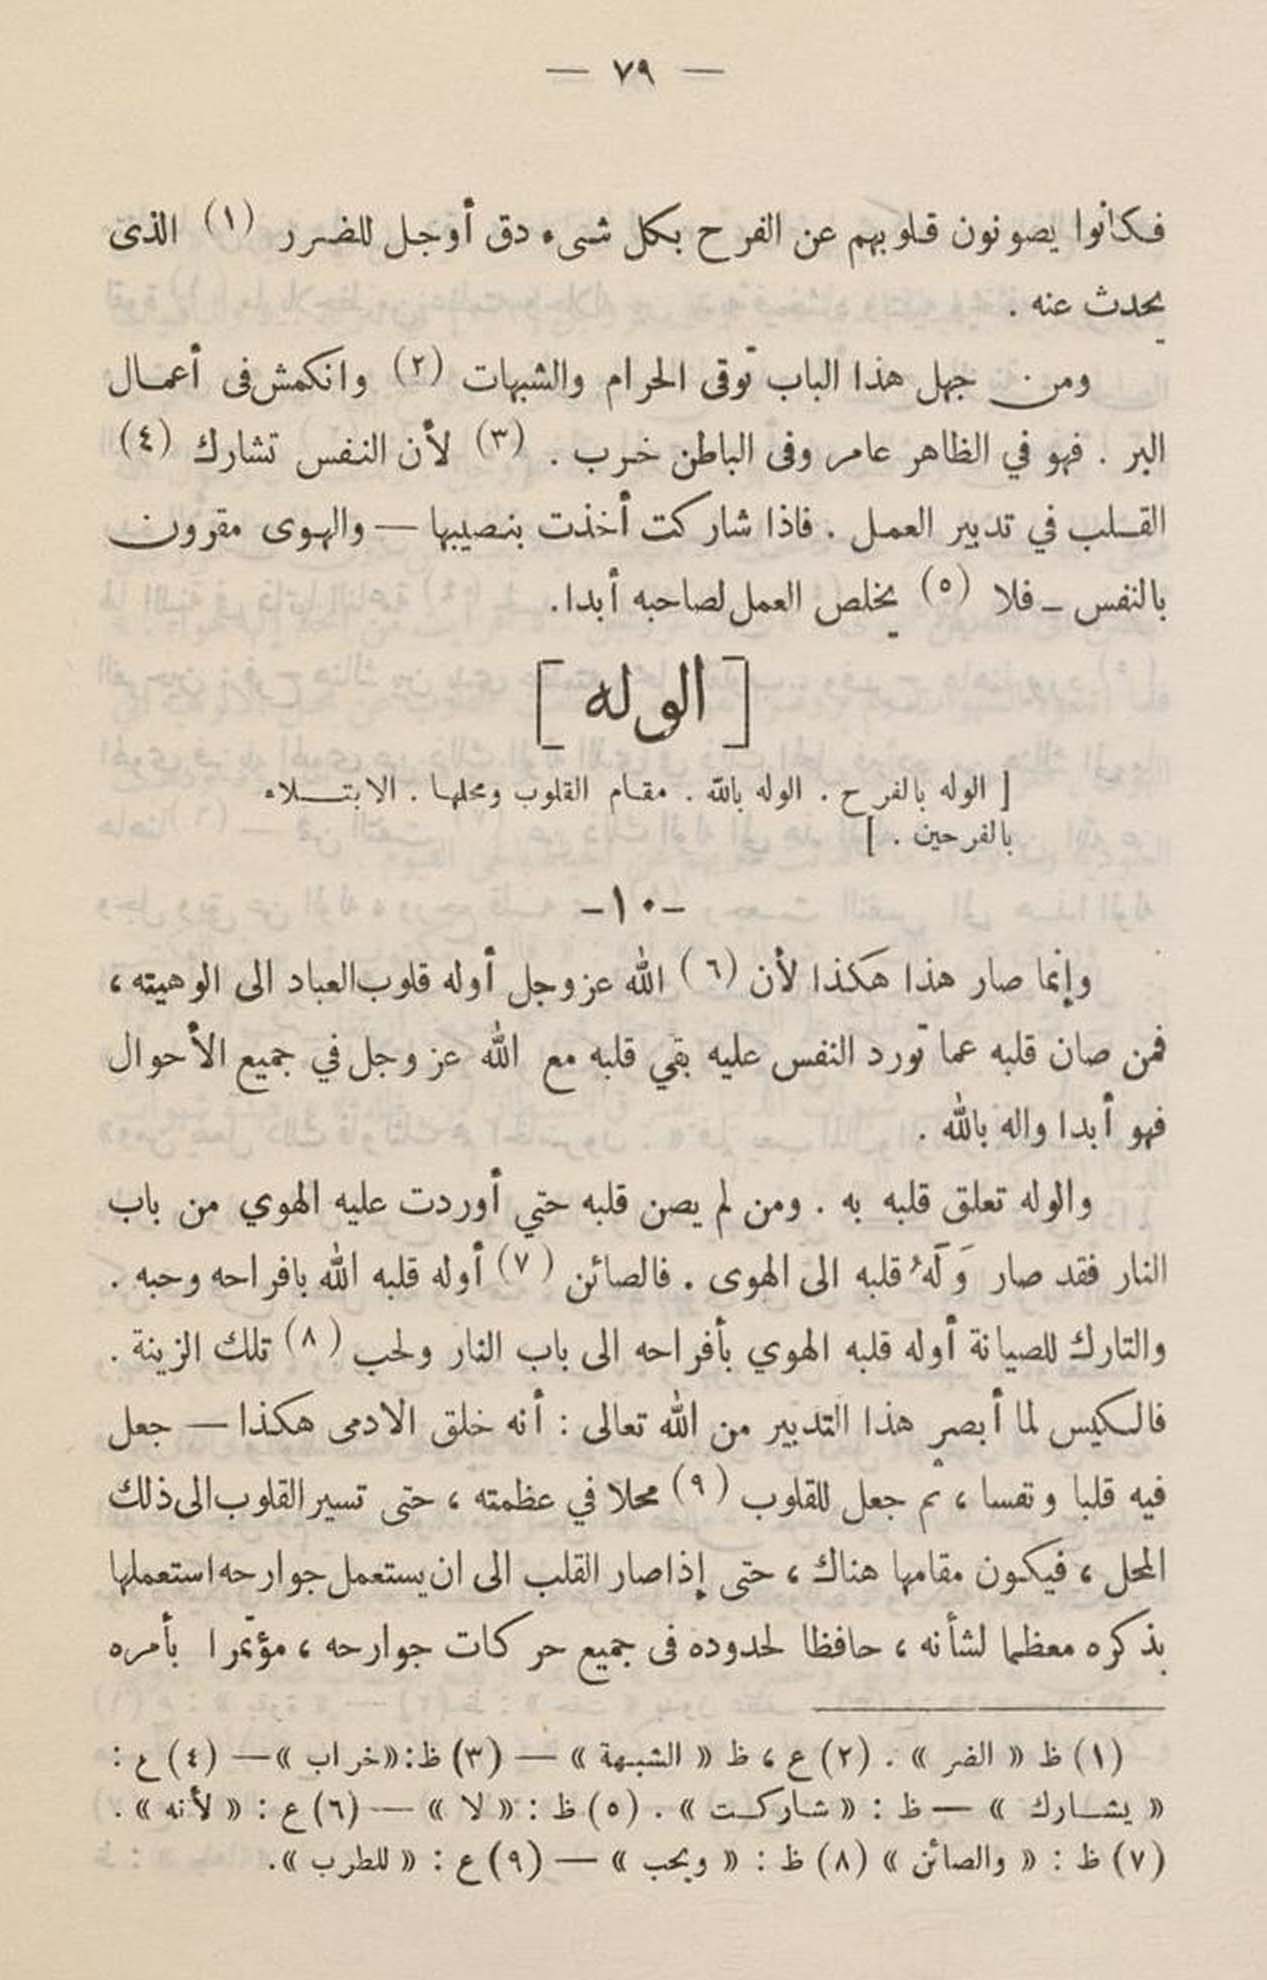 — ٧٩ —
فكانوا يصونون قلوبهم عن الفرح بكل شىء دق أوجل للضرر (١) الذى
يحدث عنه .
ومن جهل هذا الباب توقى الحرام والشبهات (٢) وانكمش فى أعمال
البر . فهو في الظاهر عامر وفى الباطن خرب . (٣) لأن النفس تشارك (٤)
القلب في تدبير العمل . فاذا شاركت أخذت بنصيبها — والهوى مقرون
بالنفس — فلا (٥) يخلص العمل لصاحبه أبدا .
[ الوله ]
[ الوله بالفرح . الوله بالله . مقام القلوب ومحلها . الابتلاء
بالفرحين . ]
-١٠-
وإنما صار هذا هكذا لأن (٦) الله عز وجل أوله قلوب العباد الى الوهيته ،
فمن صان قلبه عما تورد النفس عليه بقي قلبه مع الله عز وجل في جميع الأحوال
فهو أبدا واله بالله .
والوله تعلق قلبه به . ومن لم يصن قلبه حتي أوردت عليه الهوي من باب
النار فقد صار وَلَهُ قلبه الى الهوى . فالصائن (٧) أوله قلبه الله بافراحه وحبه .
والتارك للصيانة أوله قلبه الهوي بأفراحه الى باب النار ولحب (٨) تلك الزينة .
فالكيس لما أبصر هذا التدبير من الله تعالى : أنه خلق الادمى هكذا — جعل
فيه قلبا ونفسا ، ثم جعل للقلوب (٩) محلا في عظمته ، حتى تسير القلوب الى ذلك
المحل ، فيكون مقامها هناك ، حتى إذا صار القلب الى ان يستعمل جوارحه استعملها
بذكره معظما لشأنه ، حافظا لحدوده فى جميع حركات جوارحه ، مؤتمرا بأمره
(١) ظ « الضر » . (٢) ع ، ظ « الشبهة » — (٣) ظ : « خراب » — (٤) ع :
« يشارك » — ظ : « شاركت » . (٥) ظ : « لا » — (٦) ع : « لأنه » .
(٧) ظ : « والصائن » (٨) ظ : « ويحب » — (٩) ع : « للطرب » .